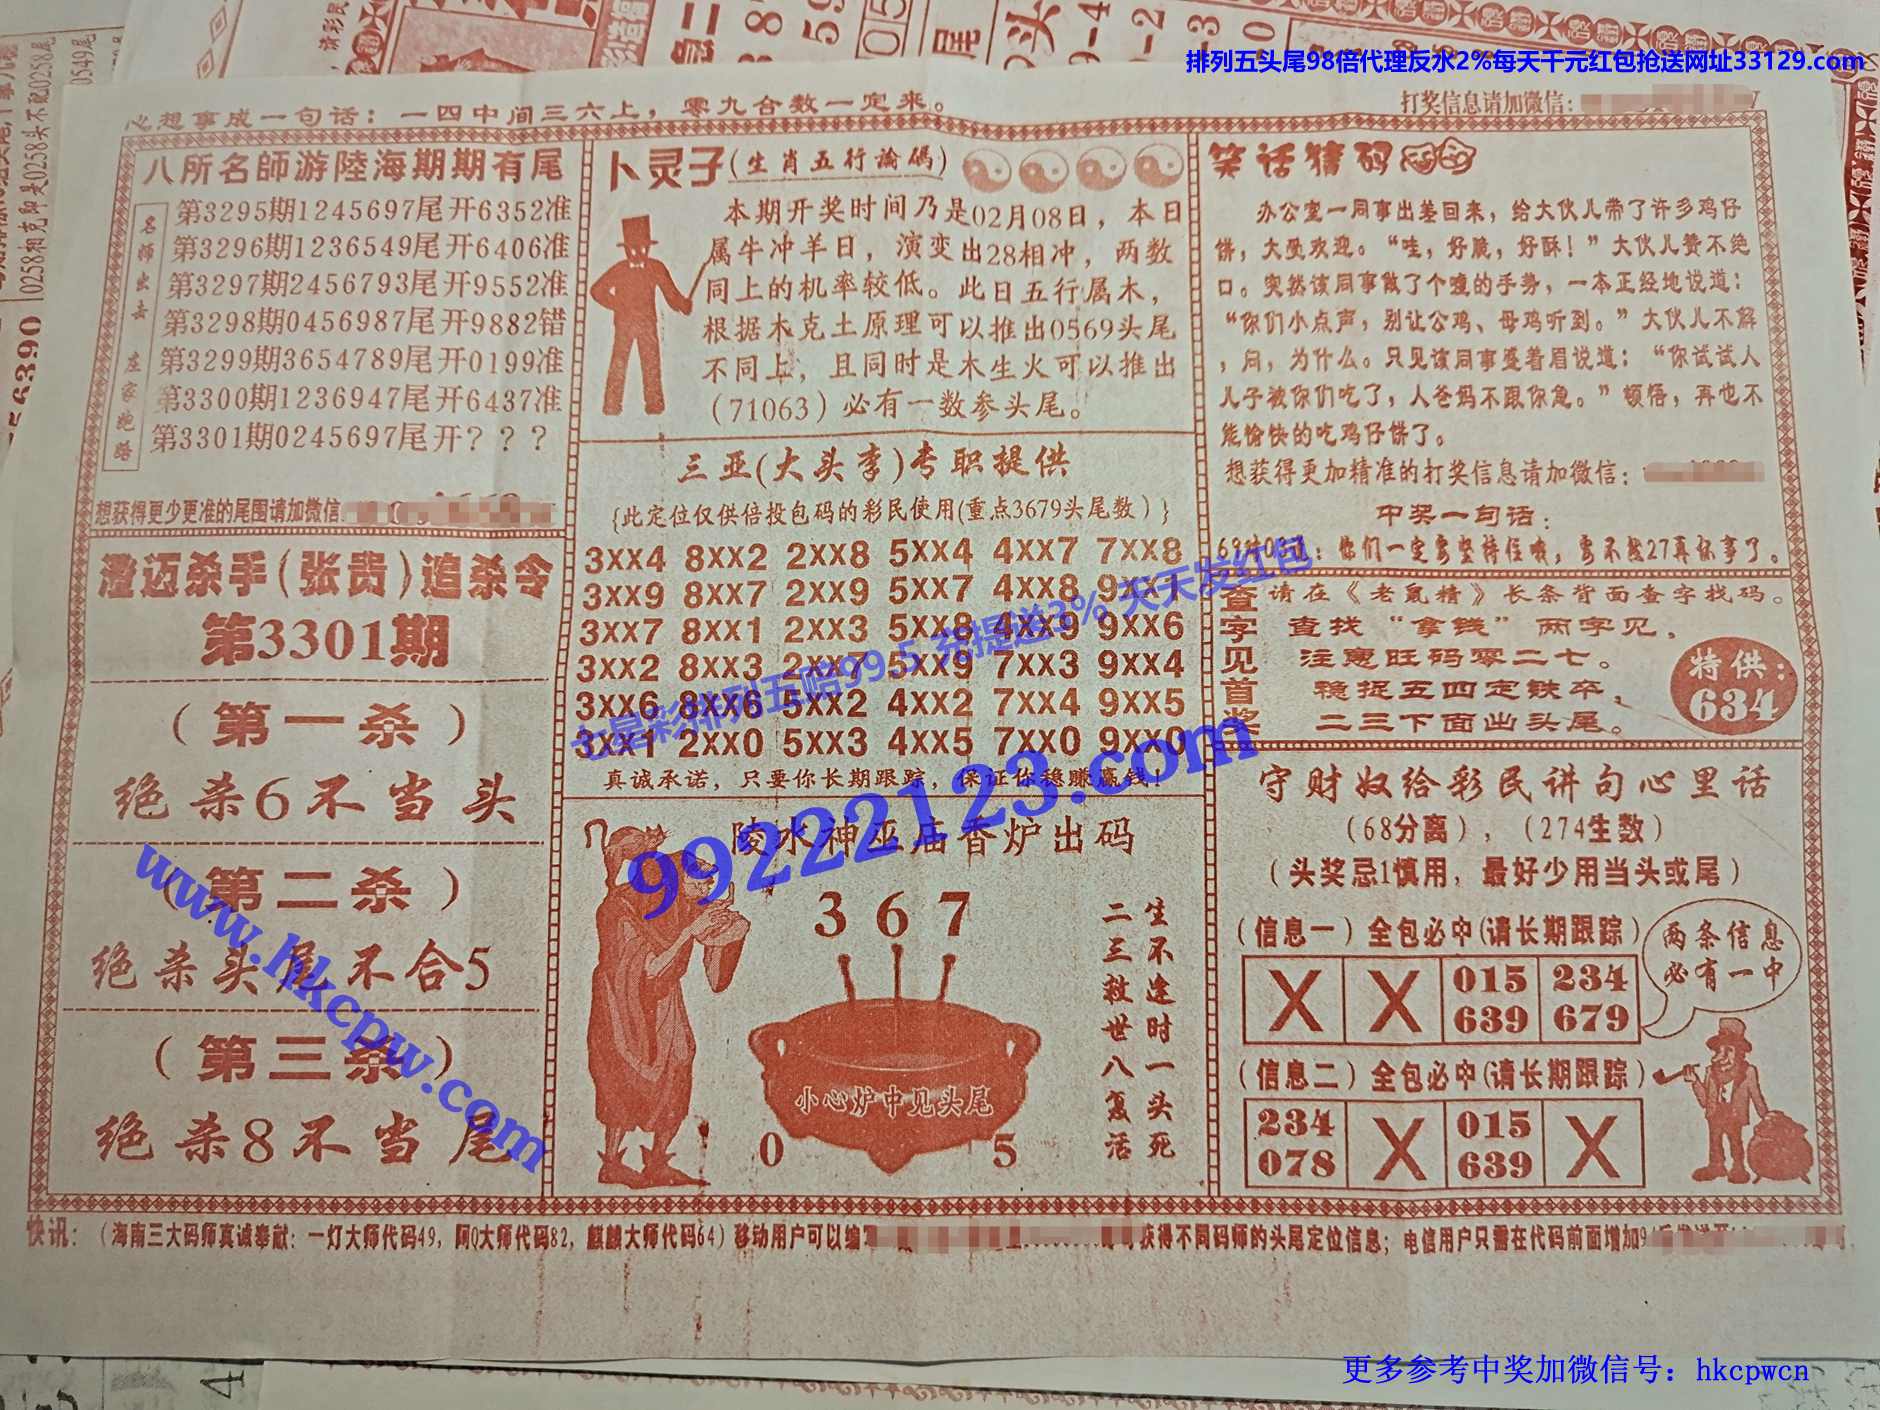 排列五头尾98倍代理反水2%每天千元红包抢送网址33129.com
心想事成一句话：一四中间三六上，零九合数一定来。
打奖信息请加微信：
八所名師游陸海期期有尾
名师出击 庄家跑路
第3295期1245697尾开6352准
第3296期1236549尾开6406准
第3297期2456793尾开9552准
第3298期0456987尾开9882错
第3299期3654789尾开0199准
第3300期1236947尾开6437准
第3301期0245697尾开？？？
想获得更少更准的尾围请加微信
澄迈杀手(张贵)追杀令
第3301期
（第一杀）
绝杀6不当头
（第二杀）
绝杀头尾不合5
（第三杀）
绝杀8不当尾
卜灵子(生肖五行論碼)
本期开奖时间乃是02月08日，本日
属牛冲羊日，演变出28相冲，两数
同上的机率较低。此日五行属木，
根据木克土原理可以推出0569头尾
不同上，且同时是木生火可以推出
（71063）必有一数参头尾。
三亚(大头李)专职提供
{此定位仅供倍投包码的彩民使用(重点3679头尾数）}
3XX4 8XX2 2XX8 5XX4 4XX7 7XX8
3XX9 8XX7 2XX9 5XX7 4XX8 9XX1
3XX7 8XX1 2XX3 5XX8 4XX9 9XX6
3XX2 8XX3 2XX7 5XX9 7XX3 9XX4
3XX6 8XX6 5XX2 4XX2 7XX4 9XX5
3XX1 2XX0 5XX3 4XX5 7XX0 9XX0
真诚承诺，只要你长期跟踪，保证你稳赚赢钱！
陵水神巫庙香炉出码
367
生不逢时一头死
二三救世八复活
小心炉中见头尾
0
5
笑话猜码
办公室一同事出差回来，给大伙儿带了许多鸡仔
饼，大受欢迎。“哇，好脆，好酥！”大伙儿赞不绝
口。突然该同事做了个嘘的手势，一本正经地说道：
“你们小点声，别让公鸡、母鸡听到。”大伙儿不解
，问，为什么。只见该同事蹙着眉说道：“你试试人
儿子被你们吃了，人爸妈不跟你急。”顿悟，再也不
能愉快的吃鸡仔饼了。
想获得更加精准的打奖信息请加微信：
中奖一句话：
：他们一定要坚持住哦，要不然27真你事了。
查字见首奖
请在《老鼠精》长条背面查字找码。
查找“拿钱”两字见，
注意旺码零二七。
稳捉五四定铁卒，
二三下面出头尾。
特供：
634
守财奴给彩民讲句心里话
（68分离），（274生数）
（头奖忌1慎用，最好少用当头或尾）
（信息一）全包必中(请长期跟踪)
X X 015 234
639 679
两条信息
必有一中
（信息二）全包必中(请长期跟踪)
234 X 015 X
078 639
快讯：（海南三大码师真诚奉献：一灯大师代码49，阿Q大师代码82，麒麟大师代码64）移动用户可以编写
获得不同码师的头尾定位信息；电信用户只需在代码前面增加9
七星彩排列五赔99.5 充提送3% 天天发红包
99222123.com
www.hkcpw.com
更多参考中奖加微信号：hkcpwcn